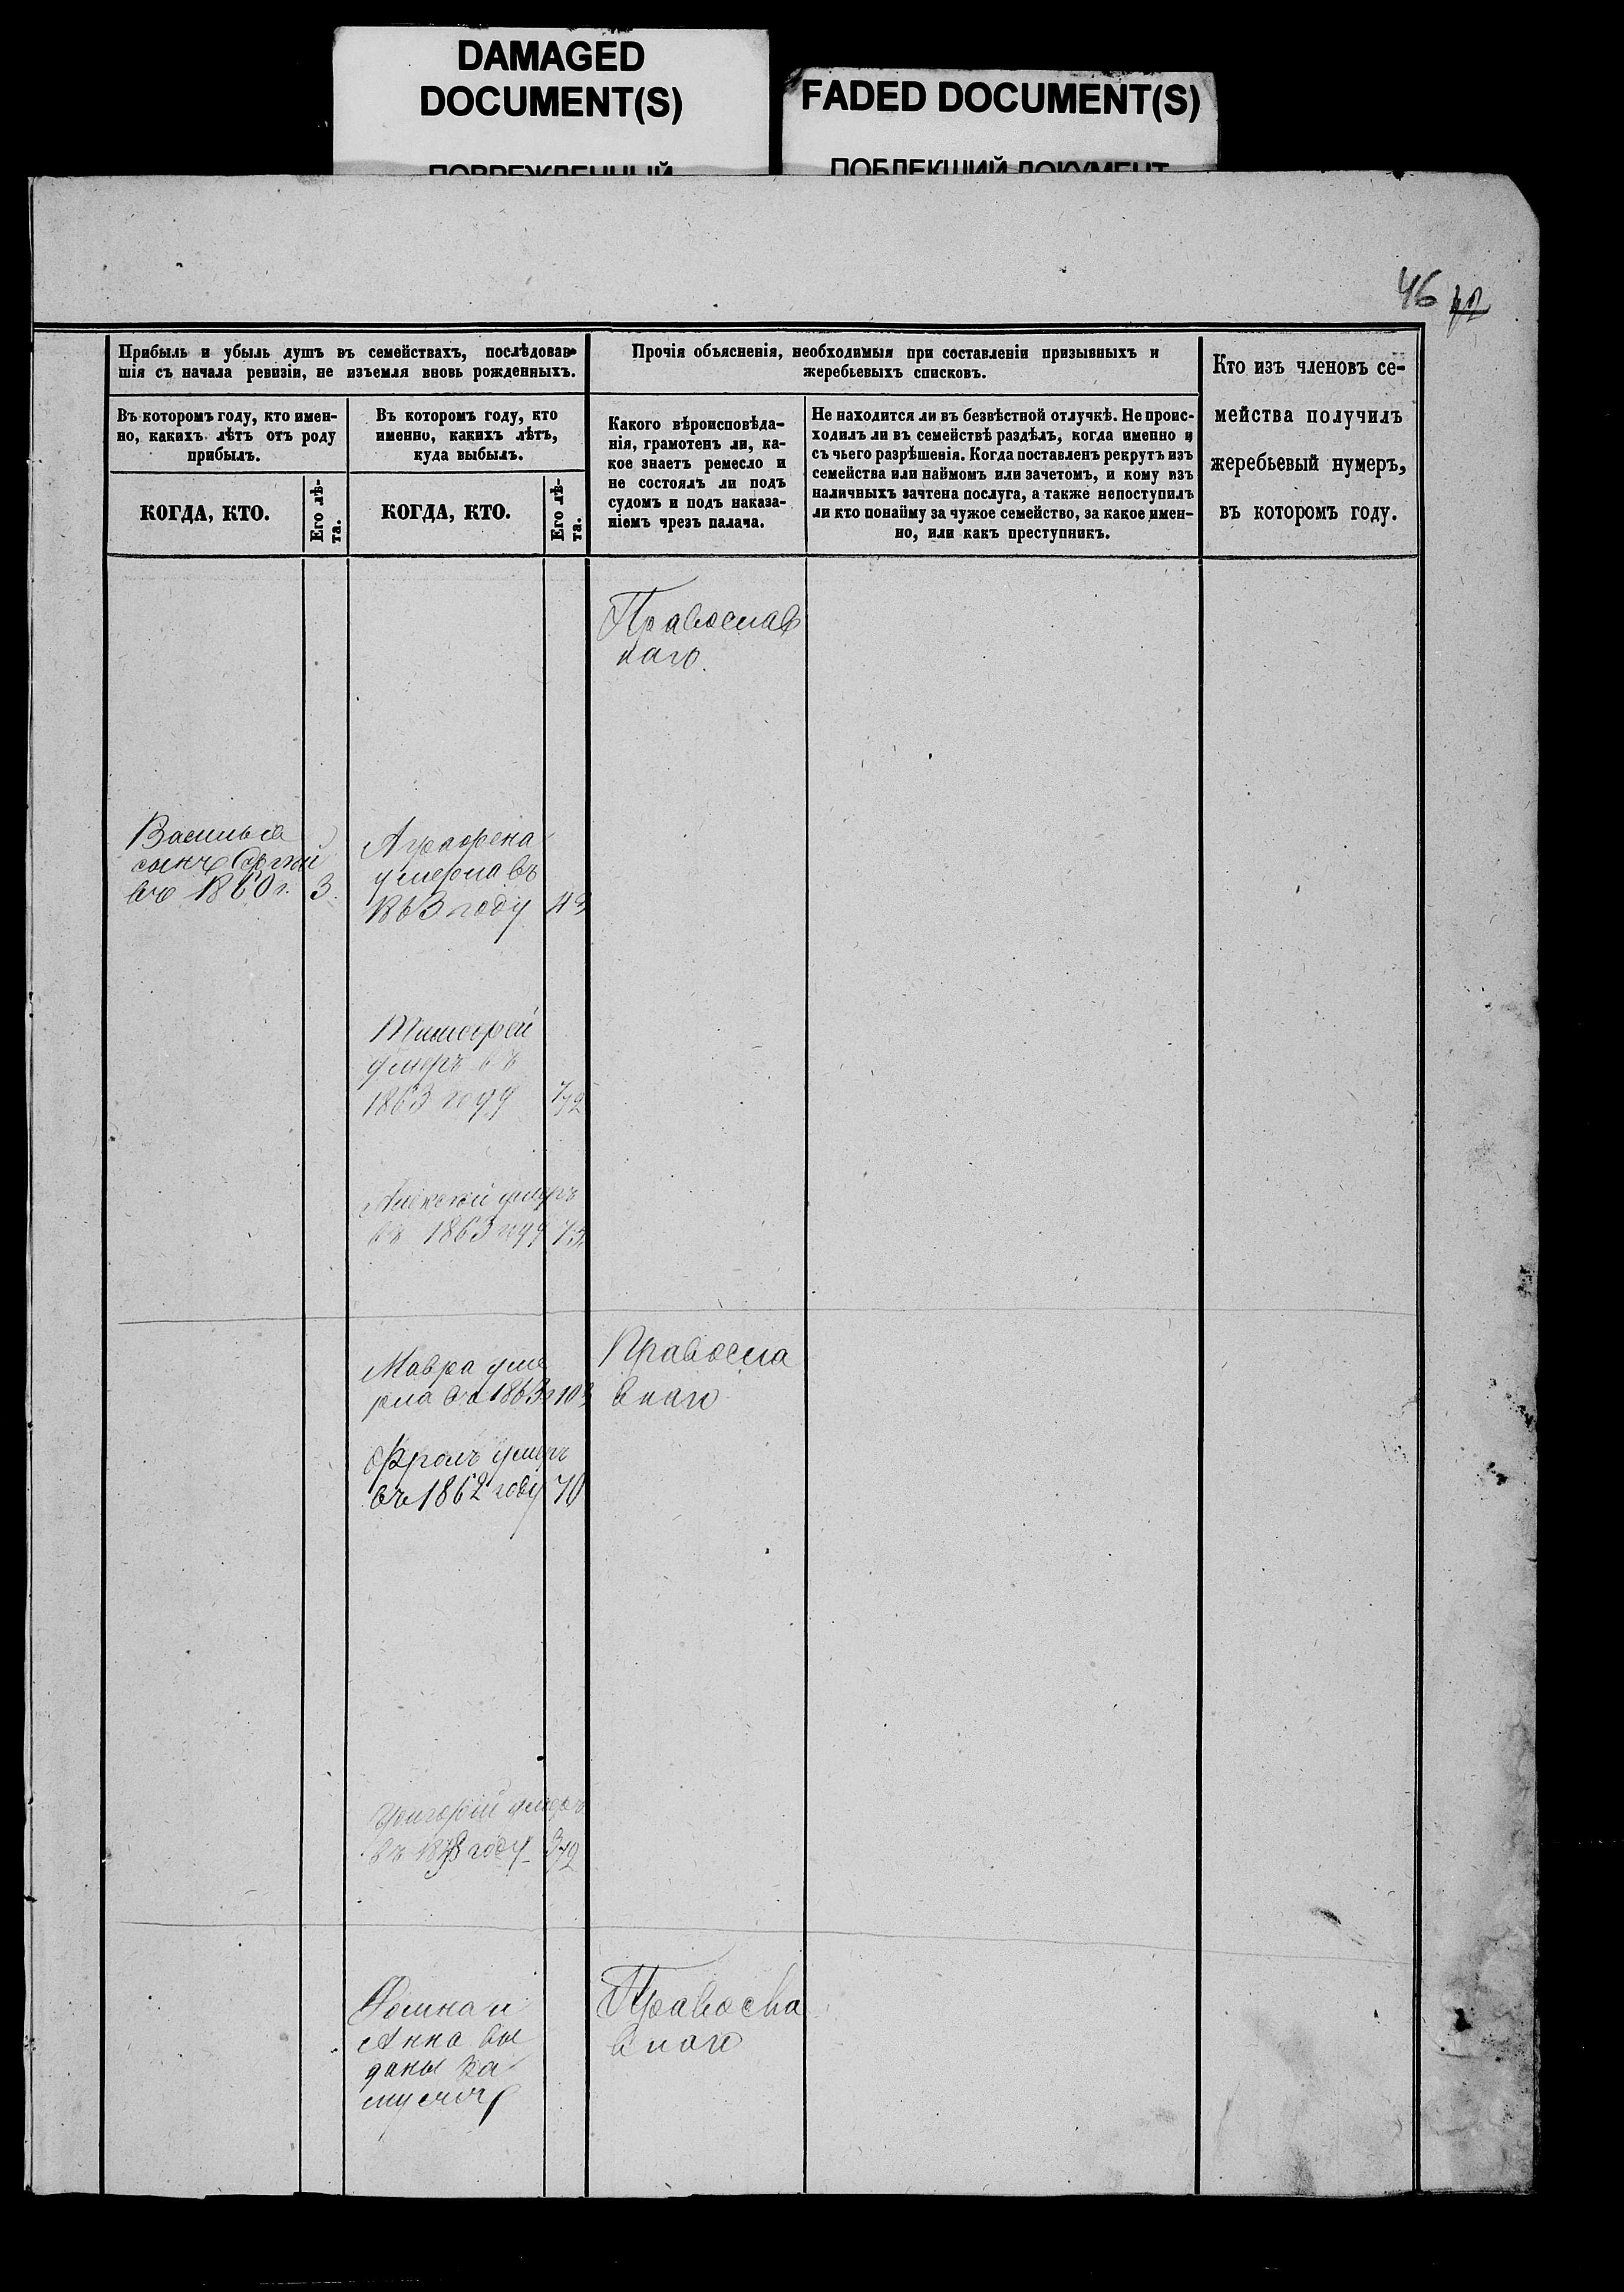 DAMAGED
DOCUMENT(S)
ПОВРЕЖДЕННЫЙ
FADED DOCUMENT(S)
ПОБЛЕКШИЙ ДОКУМЕНТ
46
Прибыль и убыль душъ въ семействахъ, послѣдовав-
шія съ начала ревизіи, не изъемля вновь рожденныхъ.
Въ которомъ году, кто имен-
но, какихъ лѣтъ отъ роду
прибылъ.
КОГДА, КТО.
Его лѣ-
та.
Въ которомъ году, кто
именно, какихъ лѣтъ,
куда выбылъ.
КОГДА, КТО.
Его лѣ-
та.
Прочія объясненія, необходимыя при составленіи призывныхъ и
жеребьевыхъ списковъ.
Какого вѣроисповѣда-
нія, грамотенъ ли, ка-
кое знаетъ ремесло и
не состоялъ ли подъ
судомъ и подъ наказа-
ніемъ чрезъ палача.
Не находится ли въ безвѣстной отлучкѣ. Не проис-
ходилъ ли въ семействѣ раздѣлъ, когда именно и
съ чьего разрѣшенія. Когда поставленъ рекрутъ изъ
семейства или наймомъ или зачетомъ, и кому изъ
наличныхъ зачтена послуга, а также непоступилъ
ли кто понайму за чужое семейство, за какое имен-
но, или какъ преступникъ.
Кто изъ членовъ се-
мейства получилъ
жеребьевый нумеръ,
въ которомъ году.
Православ
наго.
Василья
сынъ Сергѣй
въ 1860 г. 3.
Аграфена
умерла въ
1863 году 43
Тимофей
умеръ въ
1863 году
Алексѣй умеръ
въ 1863 году
Мавра уме
рла въ 1863
Правосла
внаго
Фролъ умеръ
въ 1862 году 70
Григорій умеръ
въ году
Домна и
Анна вы
даны за
мужъ
Правосла
внаго